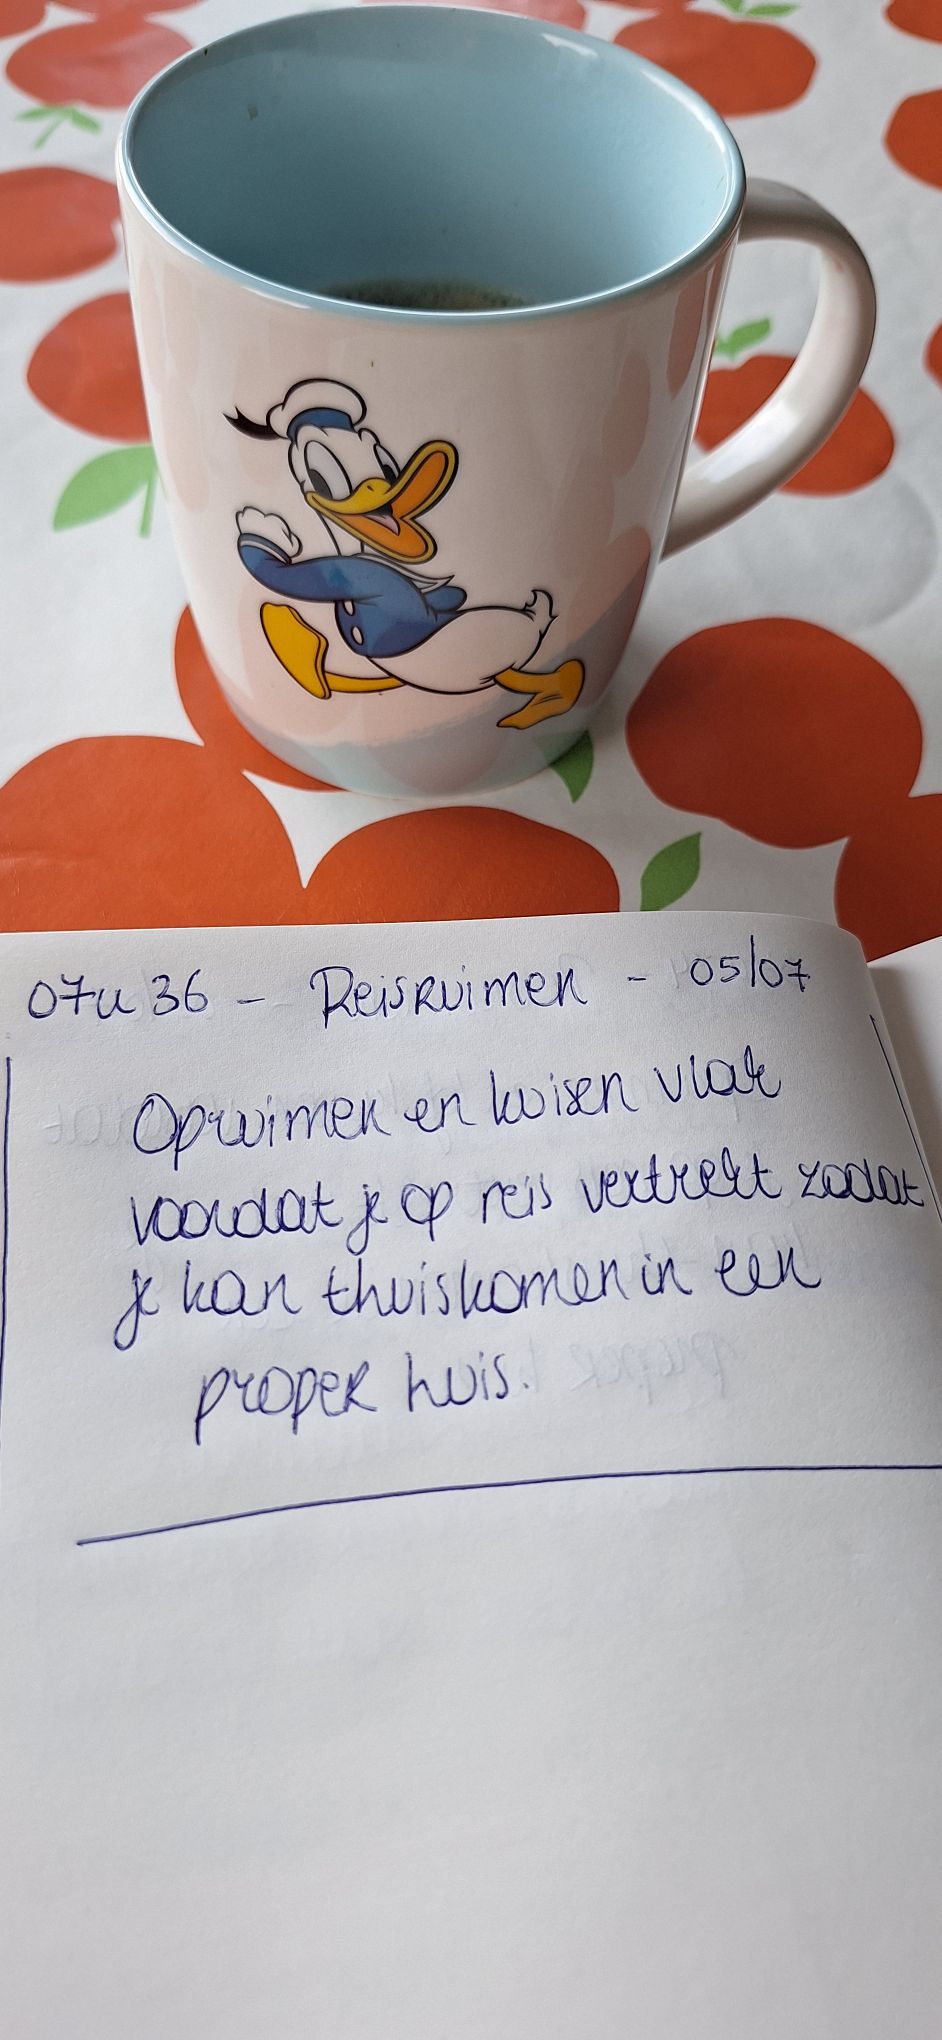 07u36 - Reisruimen - 05/07
Opruimen en kuisen vlak
voordat je op reis vertrekt zodat
je kan thuiskomen in een
proper huis.